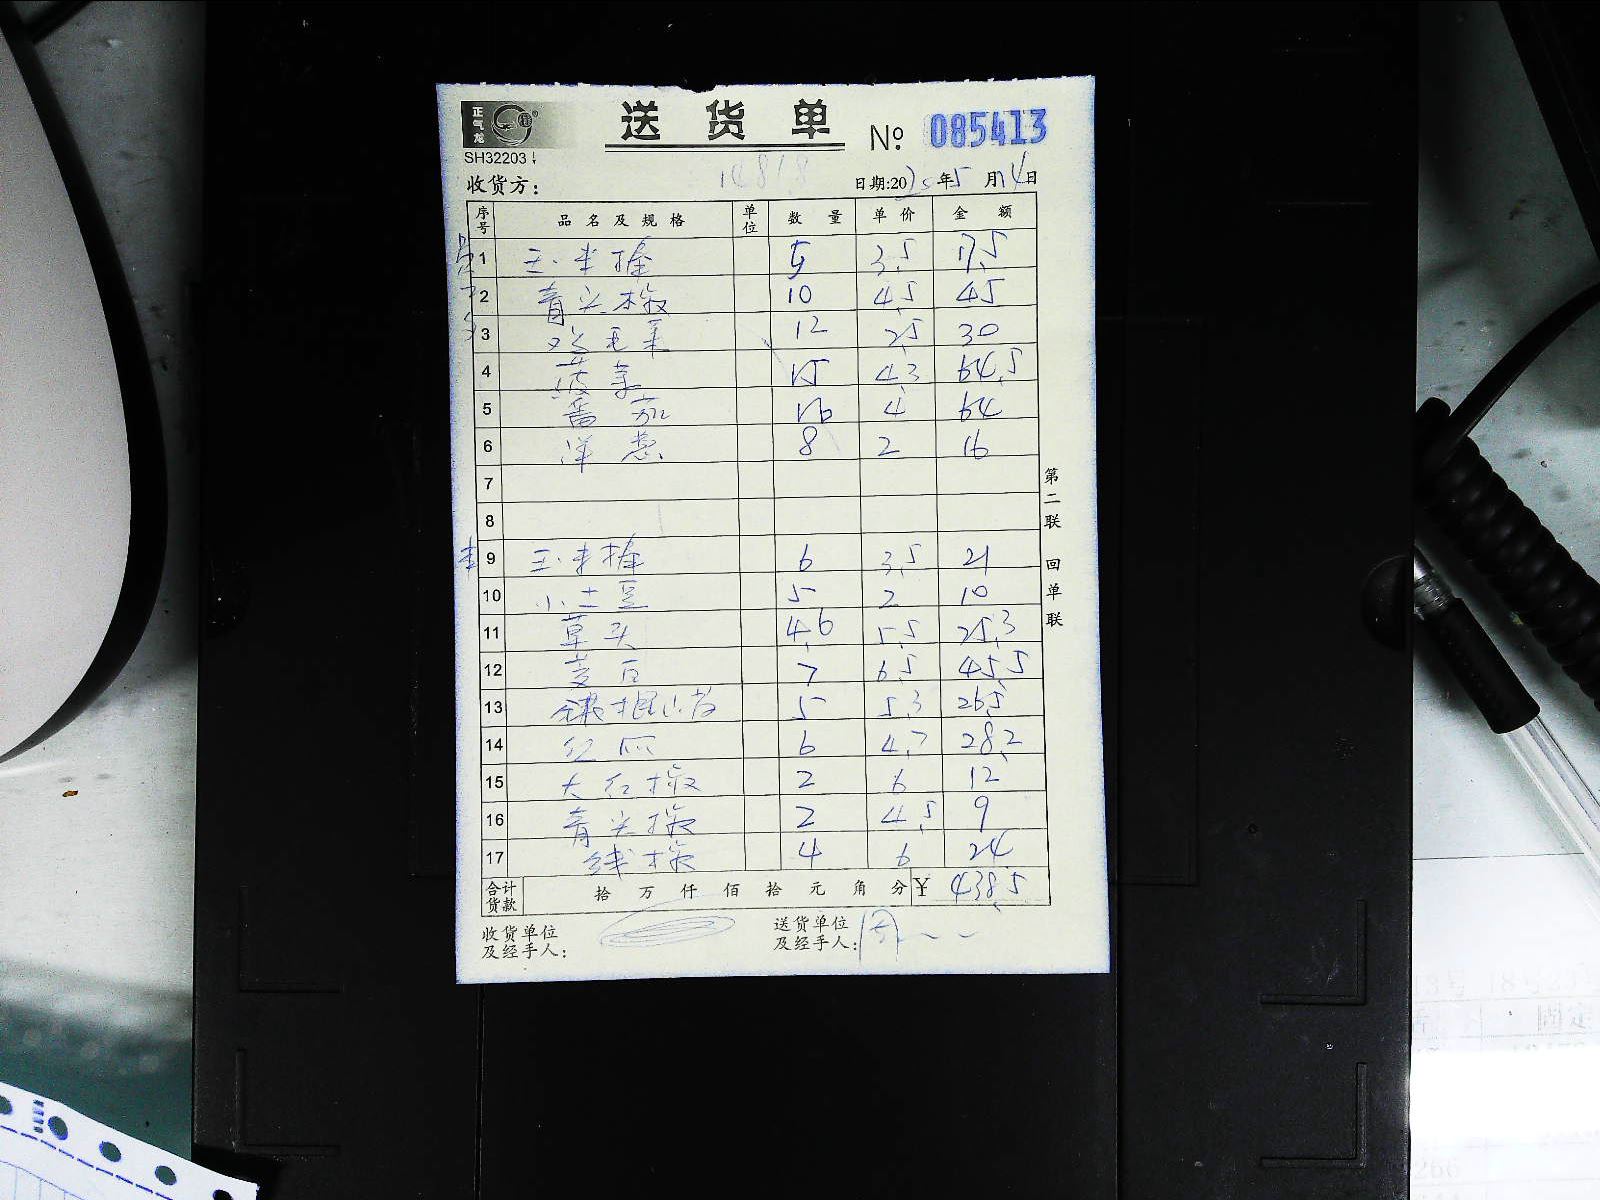 正气龙
SH32203
送货单
№ 085413
收货方：
日期:2025年5月14日
序号 品名及规格 单位 数量 单价 金额
1 玉米棒 5 3.5 17.5
2 青尖椒 10 4.5 45
3 鸡毛菜 12 2.5 30
4 菠菜 15 4.3 64.5
5 番茄 16 4 64
6 洋葱 8 2 16
7
8
9 玉米棒 6 3.5 21
10 小土豆 5 2 10
11 草头 4.6 5.5 25.3
12 6.5 7 45.5
13 5 5.3 26.5
14 6 4.7 28.2
15 大红椒 2 6 12
16 青尖椒 2 4.5 9
17 线椒 4 6 24
合计货款 拾万仟佰拾元角分 ¥ 438.5
收货单位及经手人：
送货单位及经手人：
第二联 回单联